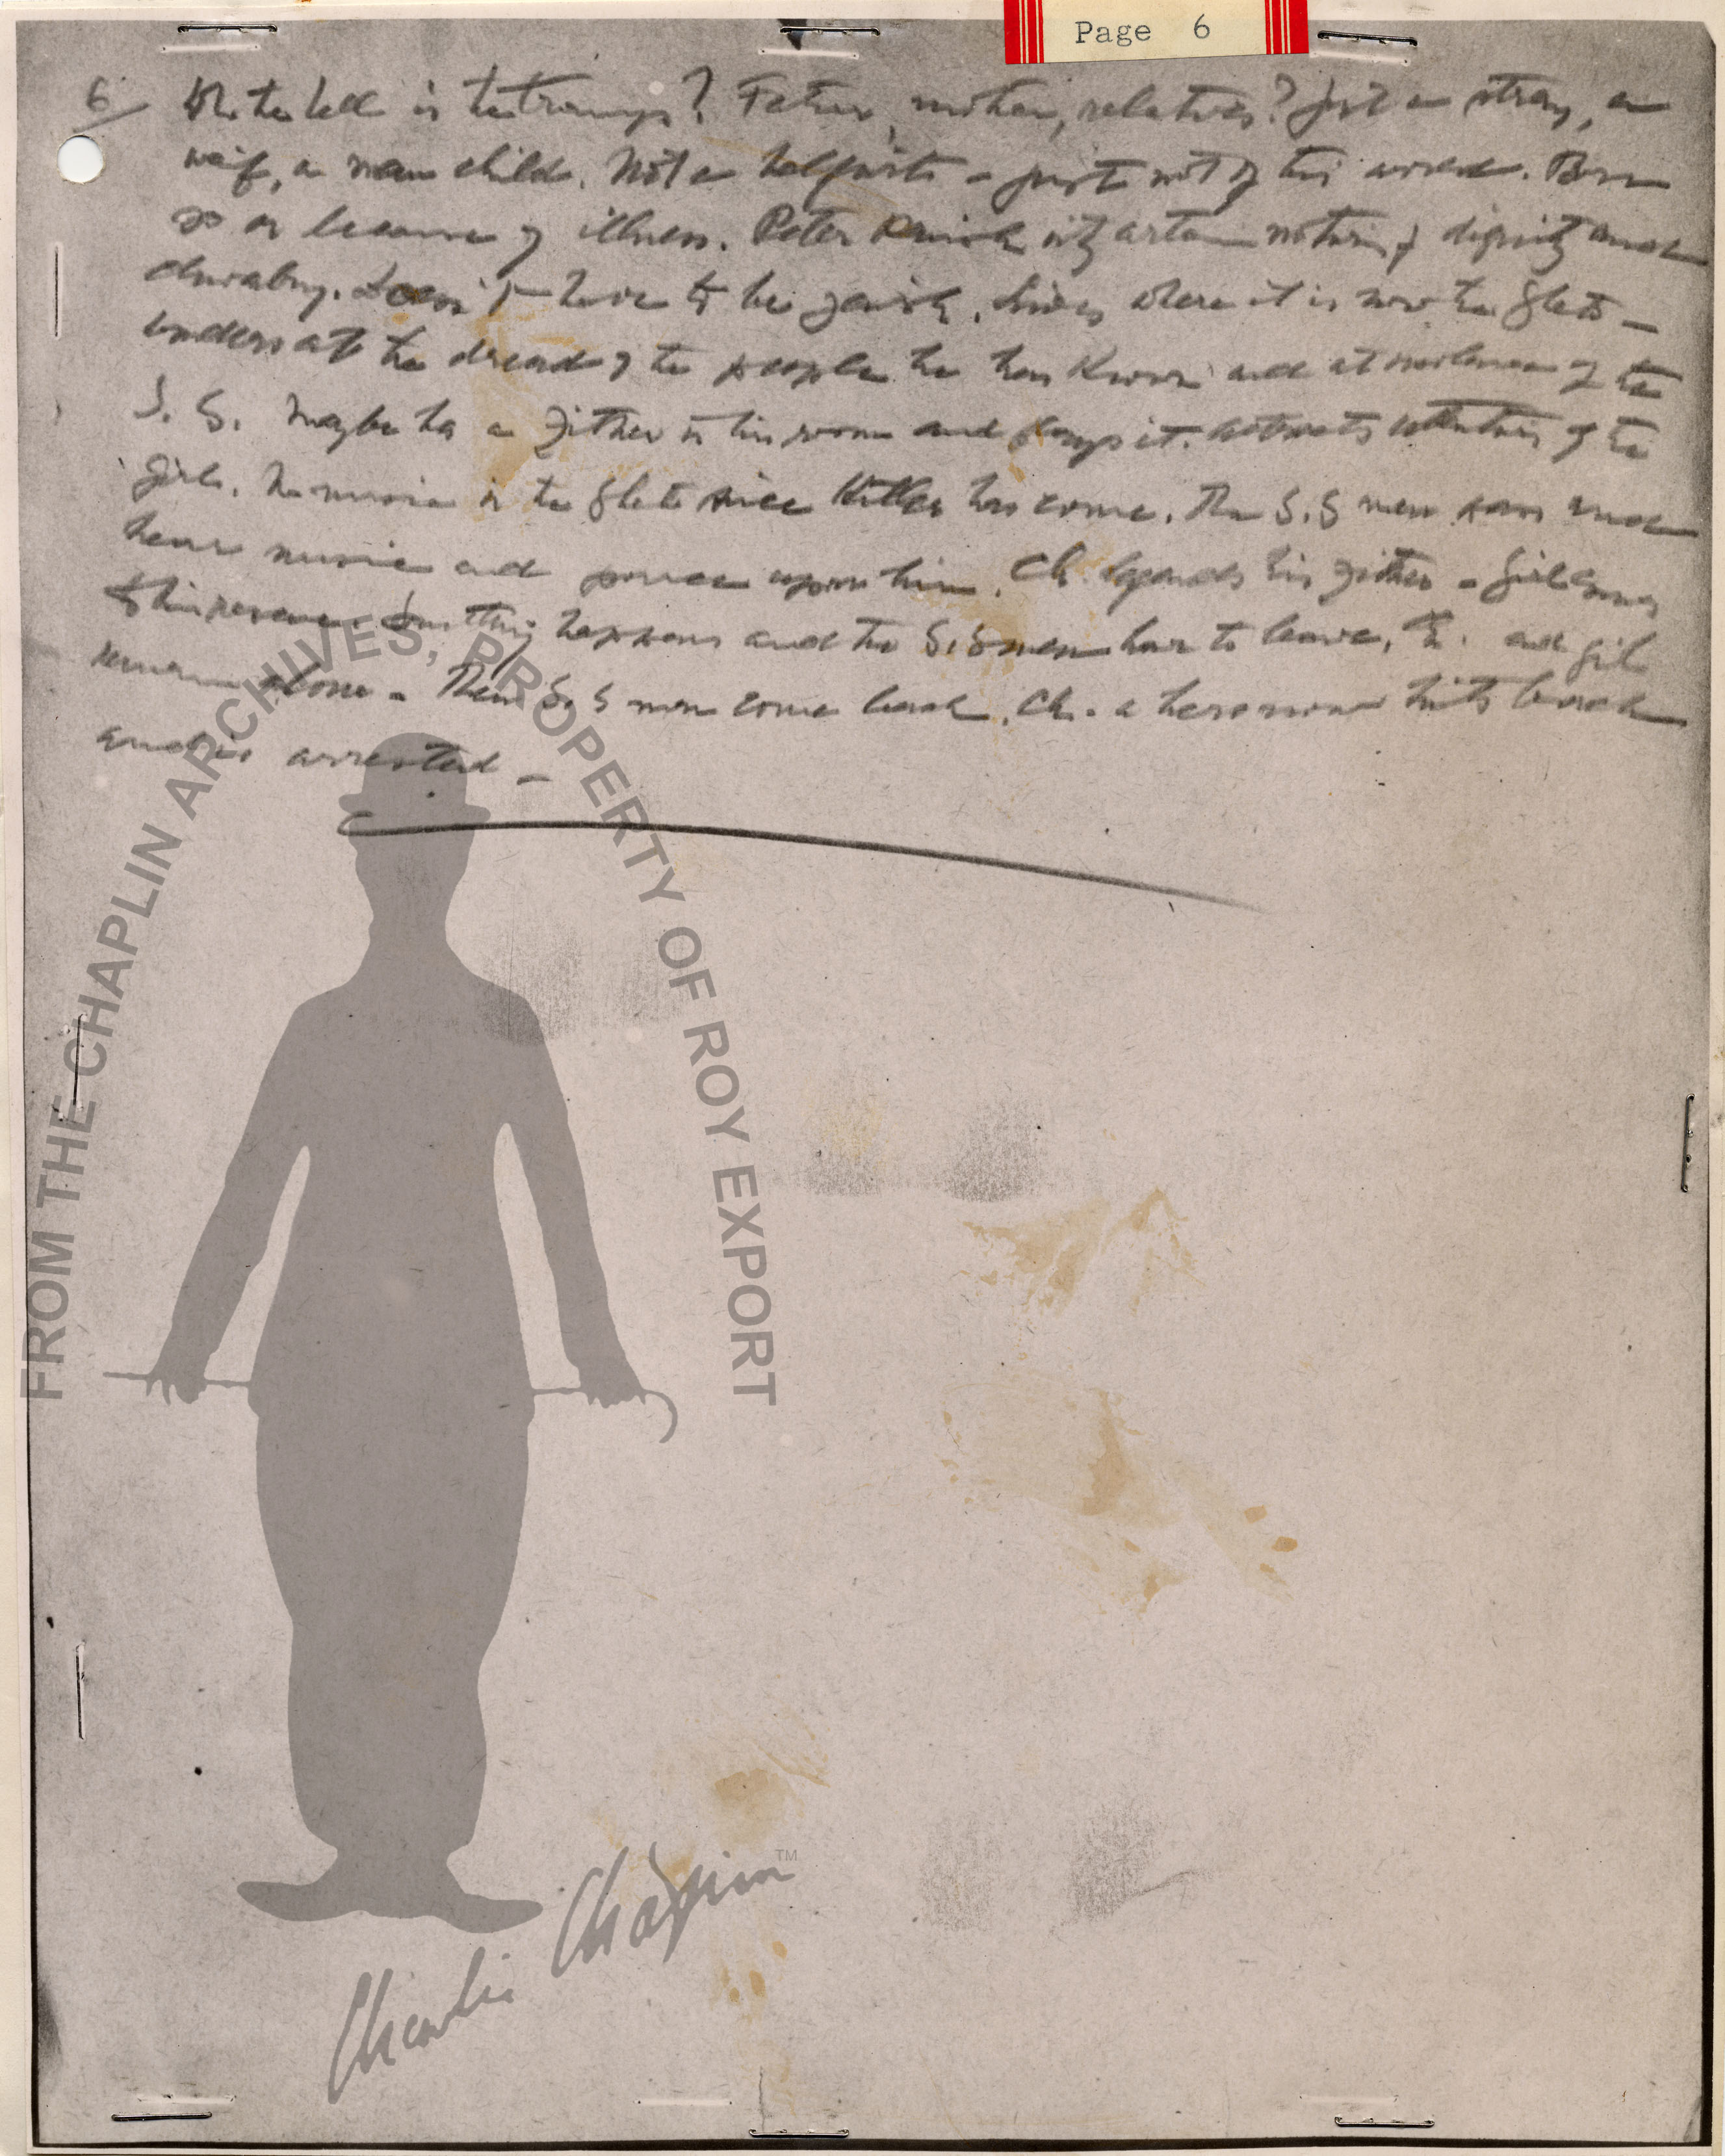 Page 6
6/ Who the hell is the tramp? Father, mother, relatives? Just a stray, a
waif, a man child. Not a halfwit - just not of this world. Born
so or because of illness. Peter Panish with certain notions of dignity and
chivalry. Doesn't have to be jewish. Lives where it is now the Gheto -
understands the dread of the people he has known and at violence of the
S. S. Maybe has a zither in his room and plays it. Attracts attention of the
girl. No music in the Gheto since Hitler has come. The S.S men pass and
hear music and pounce upon him. Ch. defends his zither - Girl comes
to his rescue. Something happens and the S.S men have to leave, Ch. and girl
remain alone - Then S.S men come back. Ch. a hero now hits back
and is arrested -
FROM THE CHAPLIN ARCHIVES, PROPERTY OF ROY EXPORT
Charlie Chaplin™